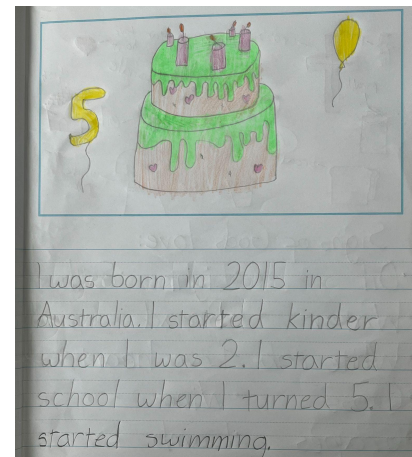 5
I was born in 2015 in
Australia. I started kinder
when I was 2. I started
school when I turned 5. I
started swimming.